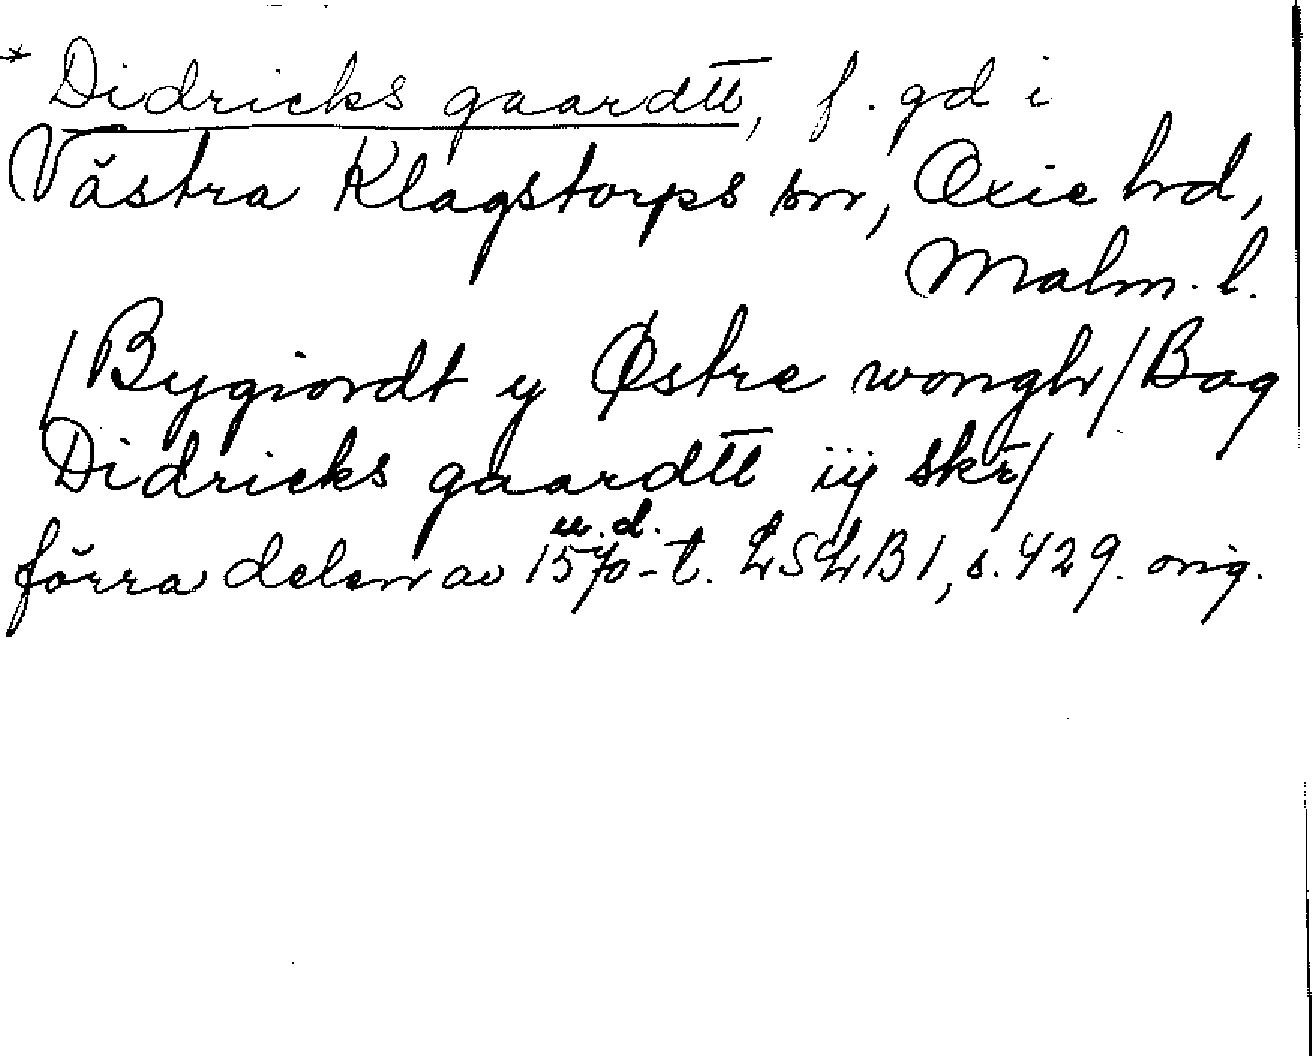 * Didricks gaardtt, f. gd i
Västra Klagstorps sn, Oxie hd,
Malm. l.
/Bygiordt y Østre wongh/Bag
Didricks gaardtt iij skr/
u. d.
förra delen av 1570-t. LSLB1, s. 429. orig.